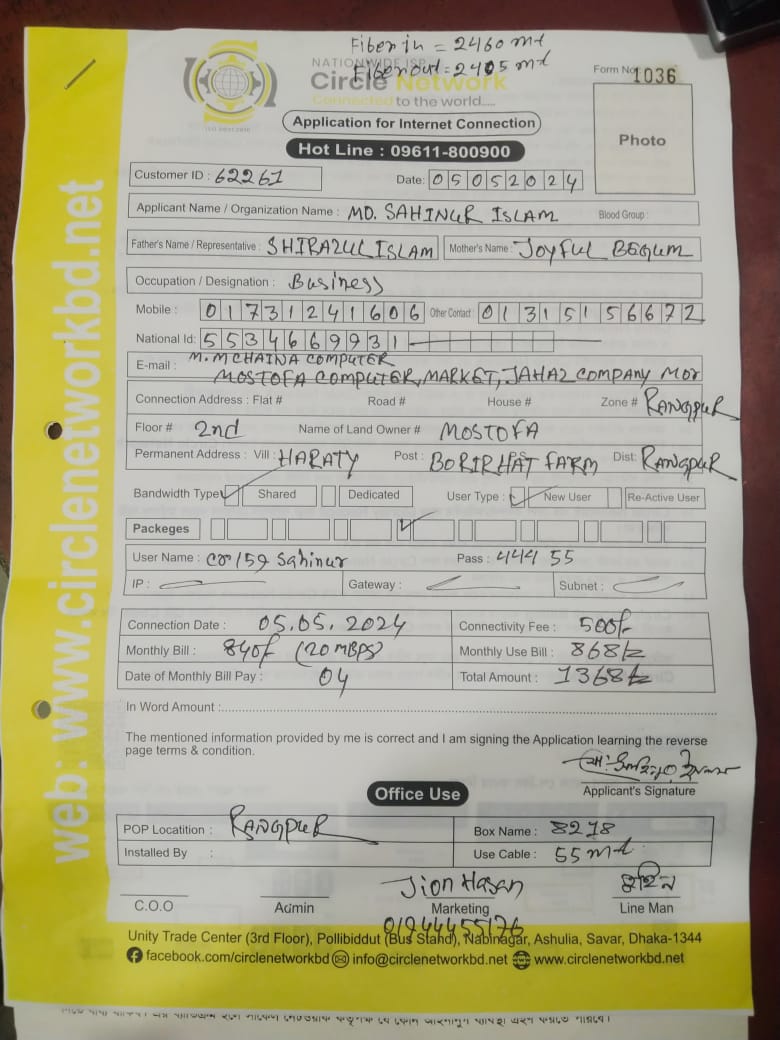 Fiber in = 2460 mt
NATIONWIDE ISP
Fiber out = 2405 mt
Circle Network
Connected to the world.....
ISO 9001:2015
Form No: 1036
Photo
Application for Internet Connection
Hot Line : 09611-800900
Customer ID : 62261 Date: 05052024
Applicant Name / Organization Name : MD. SAHINUR ISLAM Blood Group :
Father's Name / Representative : SHIRAZUL ISLAM Mother's Name : JOYFUL BEGUM
Occupation / Designation : Business
Mobile : 01731241606 Other Contact : 01315156672
National Id: 5534669931
M.M CHAINA COMPUTER
E-mail : MOSTOFA COMPUTER, MARKET, JAHAZ COMPANY MOR
Connection Address : Flat # Road # House # Zone # RANGPUR
Floor # 2nd Name of Land Owner # MOSTOFA
Permanent Address : Vill : HARATY Post : BORIRHAT FARM Dist: RANGPUR
Bandwidth Type Shared Dedicated User Type : New User Re-Active User
Packeges
User Name : Sahinur Pass : 444 55
IP : Gateway : Subnet :
Connection Date : 05.05.2024 Connectivity Fee : 500/-
Monthly Bill : 840/- (20 MBPS) Monthly Use Bill : 868 tk
Date of Monthly Bill Pay : 04 Total Amount : 1368 tk
In Word Amount :
The mentioned information provided by me is correct and I am signing the Application learning the reverse
page terms & condition.
Applicant's Signature
Office Use
POP Locatition : RANGPUR Box Name : 8218
Installed By : Use Cable : 55 mt
Jion Hasan
C.O.O Admin Marketing Line Man
01944455176
Unity Trade Center (3rd Floor), Pollibiddut (Bus Stand), Nabinagar, Ashulia, Savar, Dhaka-1344
facebook.com/circlenetworkbd info@circlenetworkbd.net www.circlenetworkbd.net
web: www.circlenetworkbd.net